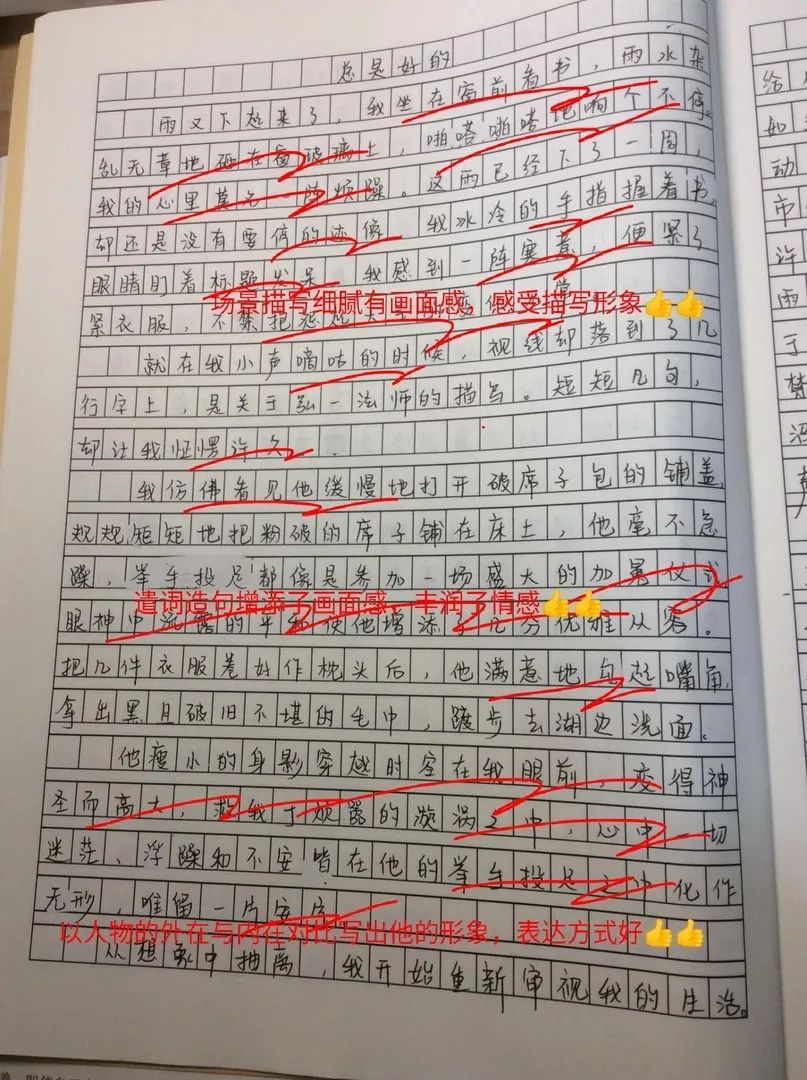 总是好的
雨又下起来了，我坐在窗前看书，雨水杂
乱无章地砸在窗玻璃上，啪嗒啪嗒地响个不停。
我的心里莫名一阵烦躁。这雨已经下了一周，
却还是没有要停的迹像。我冰冷的手指握着书，
眼睛盯着标题发呆。我感到一阵寒意，便紧了
场景描写细腻有画面感，感受描写形象👍👍
紧衣服，不禁把
就在我小声嘀咕的时候，视线却落到了几
行字上，是关于弘一法师的描写。短短几句，
却让我怔愣许久.
我仿佛看见他缓慢地打开破席子包的铺盖，
规规矩矩地把粉破的席子铺在床上，他毫不急
躁，举手投足都像是参加一场盛大的加冕仪式
遣词造句增添了画面感，丰润了情感👍👍
眼神中流露的平和使他增添了几分优雅从容。
把几件衣服卷好作枕头后，他满意地勾起嘴角，
拿出黑且破旧不堪的毛巾，踱步去湖边洗面。
他瘦小的身影穿越时空在我眼前，变得神
圣而高大，救我于烦嚣的漩涡之中，心中一切
迷茫、浮躁和不安皆在他的举手投足之中化作
无形，唯留一片安宁
以人物的外在与内在对比写出他的形象，表达方式好👍👍
从想象中抽离，我开始重新审视我的生活。
给
如
动
市
许
雨
于
梦
沼